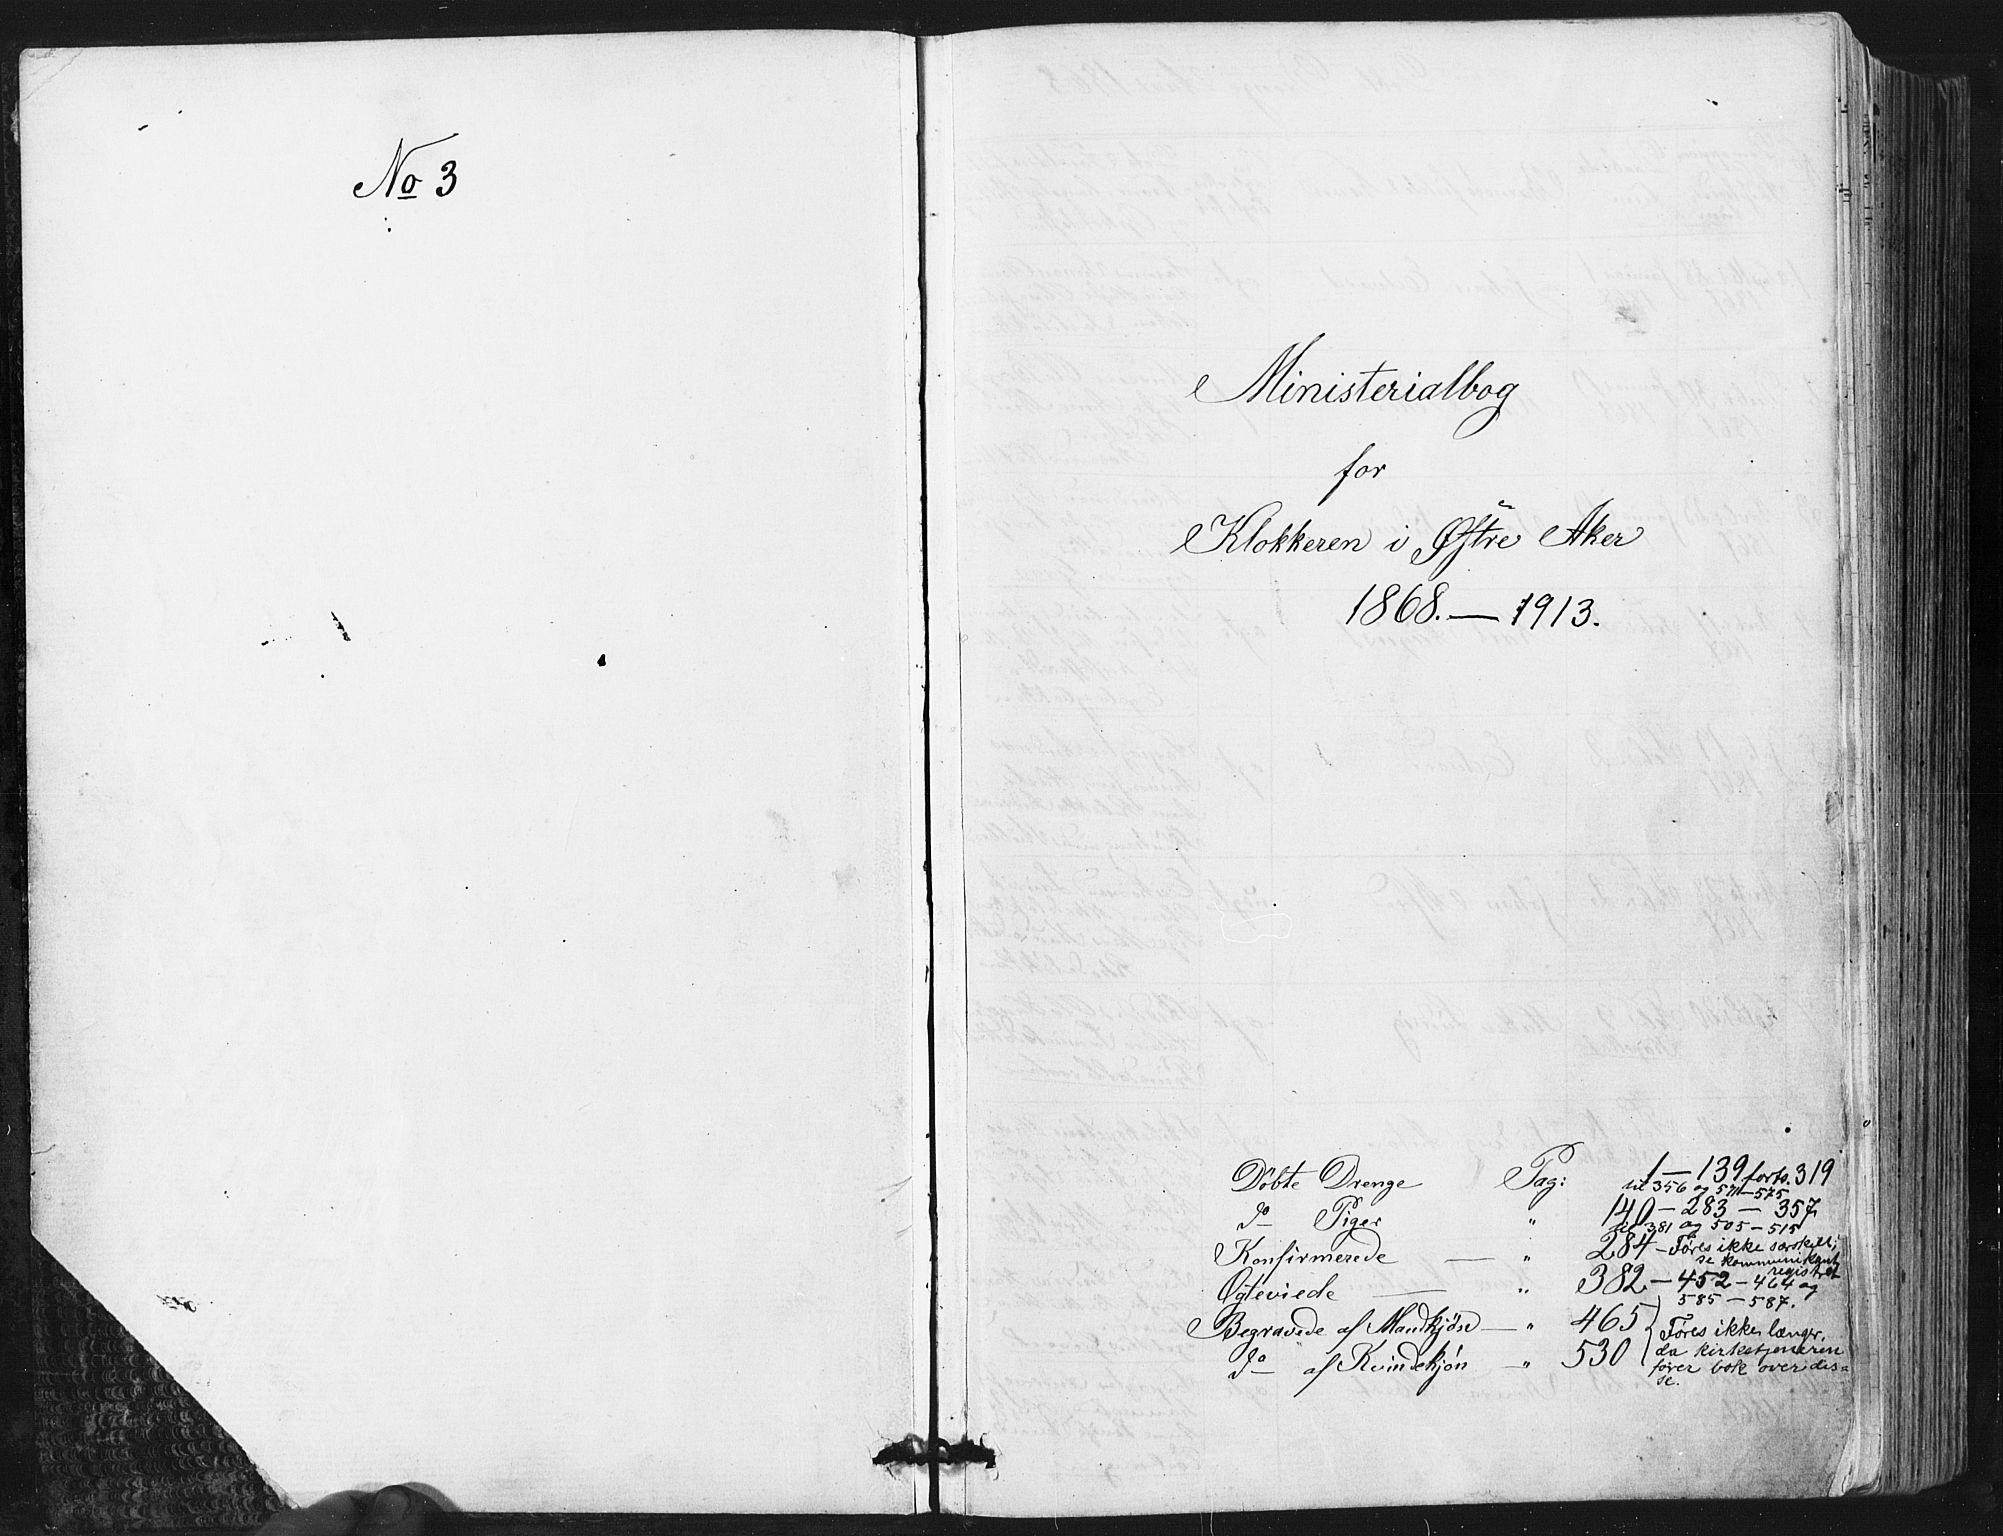 No 3
Ministerialbog
for
Klokkeren i Østre Aker
1868. — 1913.
Döbte Drenge Pag: 1 — 139 forts. 319
til 356 og 571 — 575
do Piger " 140 — 283 — 357
til 381 og 505 — 515
Konfirmerede — " 284 — Føres ikke særskilt;
se kommunikant
registret
Ægteviede — " 382 — 452 — 464 og
585 — 587.
Begravede af Mandkjön — " 465
do af Kvindekjön — " 530
Føres ikke længer,
da kirketjeneren
fører bok over dis=
se.